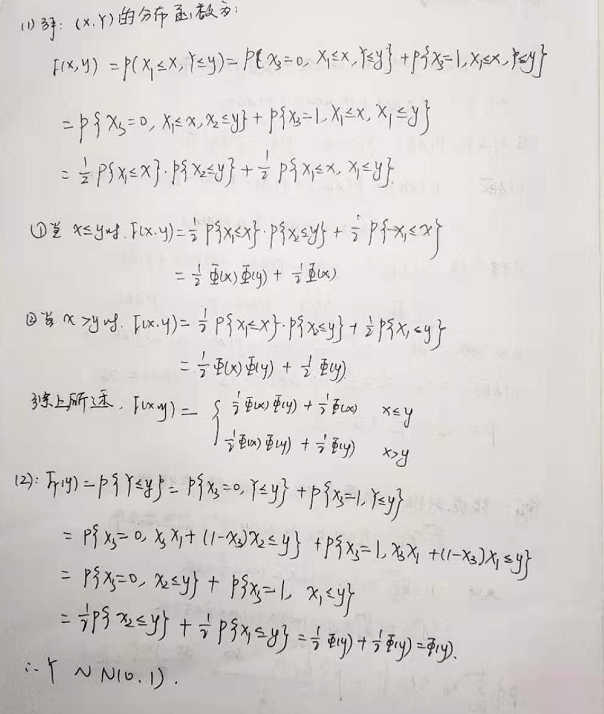 (1) 解: (X,Y)的分布函数为:
F(x,y) = P(X₁≤x, Y≤y) = P{X₃=0, X₁≤x, Y≤y} + P{X₃=1, X₁≤x, Y≤y}
= P{X₃=0, X₁≤x, X₂≤y} + P{X₃=1, X₁≤x, X₁≤y}
= 1/2 P{X₁≤x}·P{X₂≤y} + 1/2 P{X₁≤x, X₁≤y}.
①当 x≤y时. F(x,y) = 1/2 P{X₁≤x}·P{X₂≤y} + 1/2 P{X₁≤x}
= 1/2 Φ(x)Φ(y) + 1/2 Φ(x)
②当 x>y时. F(x,y) = 1/2 P{X₁≤x}·P{X₂≤y} + 1/2 P{X₁≤y}
= 1/2 Φ(x)Φ(y) + 1/2 Φ(y).
综上所述. F(x,y) = { 1/2 Φ(x)Φ(y) + 1/2 Φ(x) x≤y
1/2 Φ(x)Φ(y) + 1/2 Φ(y) x>y
(2): F_Y(y) = P{Y≤y} = P{X₃=0, Y≤y} + P{X₃=1, Y≤y}
= P{X₃=0, X₃X₁+(1-X₃)X₂≤y} + P{X₃=1, X₃X₁+(1-X₃)X₁≤y}
= P{X₃=0, X₂≤y} + P{X₃=1, X₁≤y}
= 1/2 P{X₂≤y} + 1/2 P{X₁≤y} = 1/2 Φ(y) + 1/2 Φ(y) = Φ(y).
∴ Y ~ N(0,1).